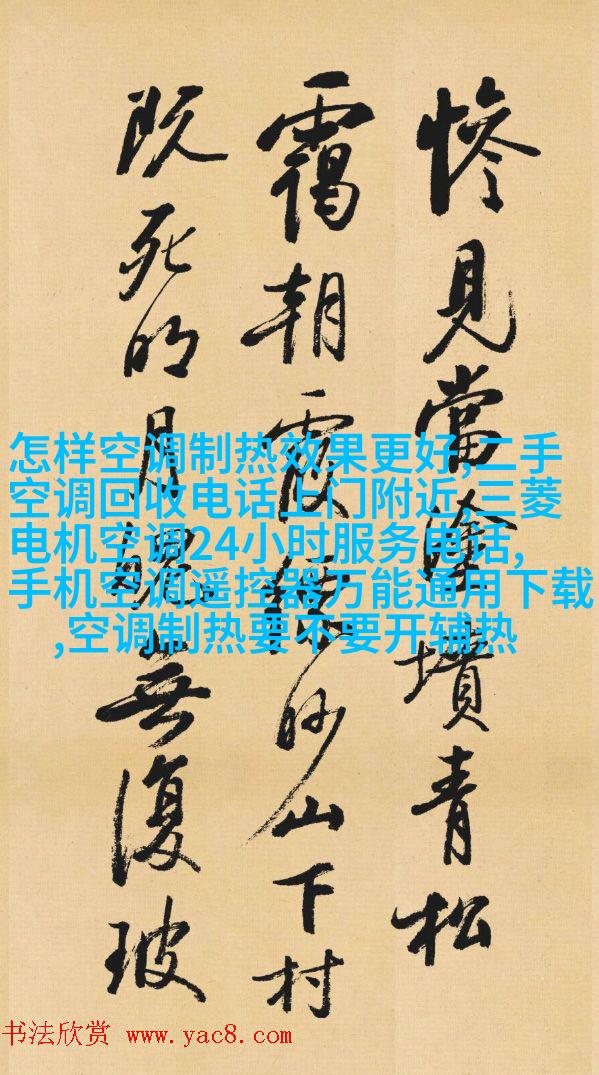 惨見當塗墳青松
靄朝霞縹眇山下村
既死明月魄無復玻
怎样空调制热效果更好,二手
空调回收电话上门附近,三菱
电机空调24小时服务电话,
手机空调遥控器万能通用下载
,空调制热要不要开辅热
书法欣赏 www.yac8.com